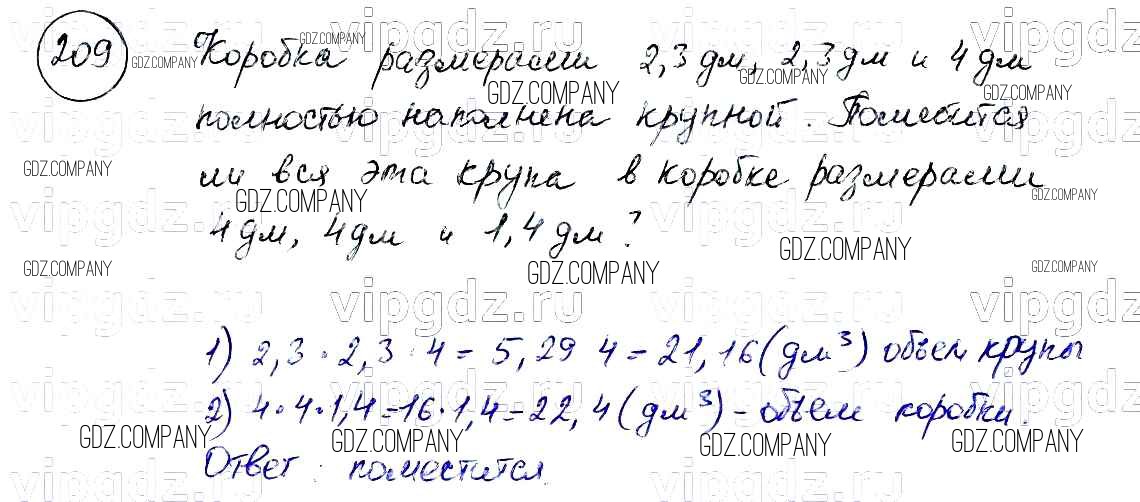 209 Коробка размерами 2,3 дм, 2,3 дм и 4 дм
полностью наполнена крупной. Поместится
ли вся эта крупа в коробке размерами
4 дм, 4 дм и 1,4 дм?
1) 2,3 · 2,3 · 4 = 5,29 4 = 21,16 (дм³) объем крупы
2) 4 · 4 · 1,4 = 16 · 1,4 = 22,4 (дм³) - объем коробки.
Ответ: поместится